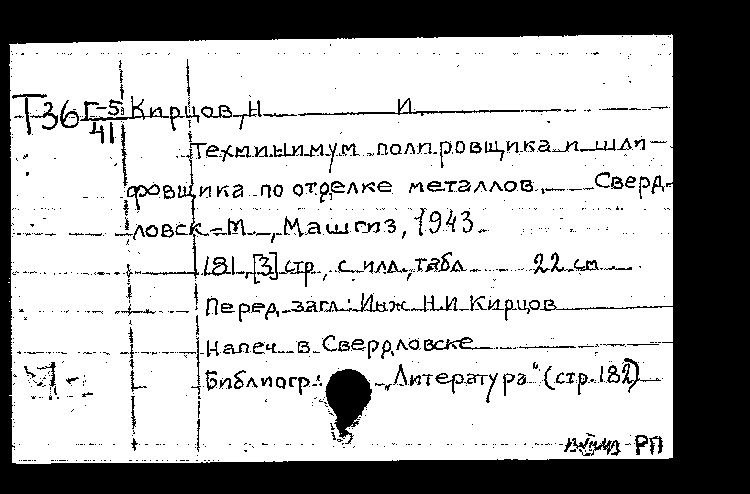 Т36 Г-5/41 Кирцов, Н И.
Техминимум полировщика и шли-
фовщика по отделке металлов. Сверд-
ловск - М., Машгиз, 1943.
181, [3] стр, с илл., табл 22 см
Перед загл.: Инж Н.И Кирцов
Напеч в Свердловске
Библиогр.: „Литература" (стр. 182)
РП